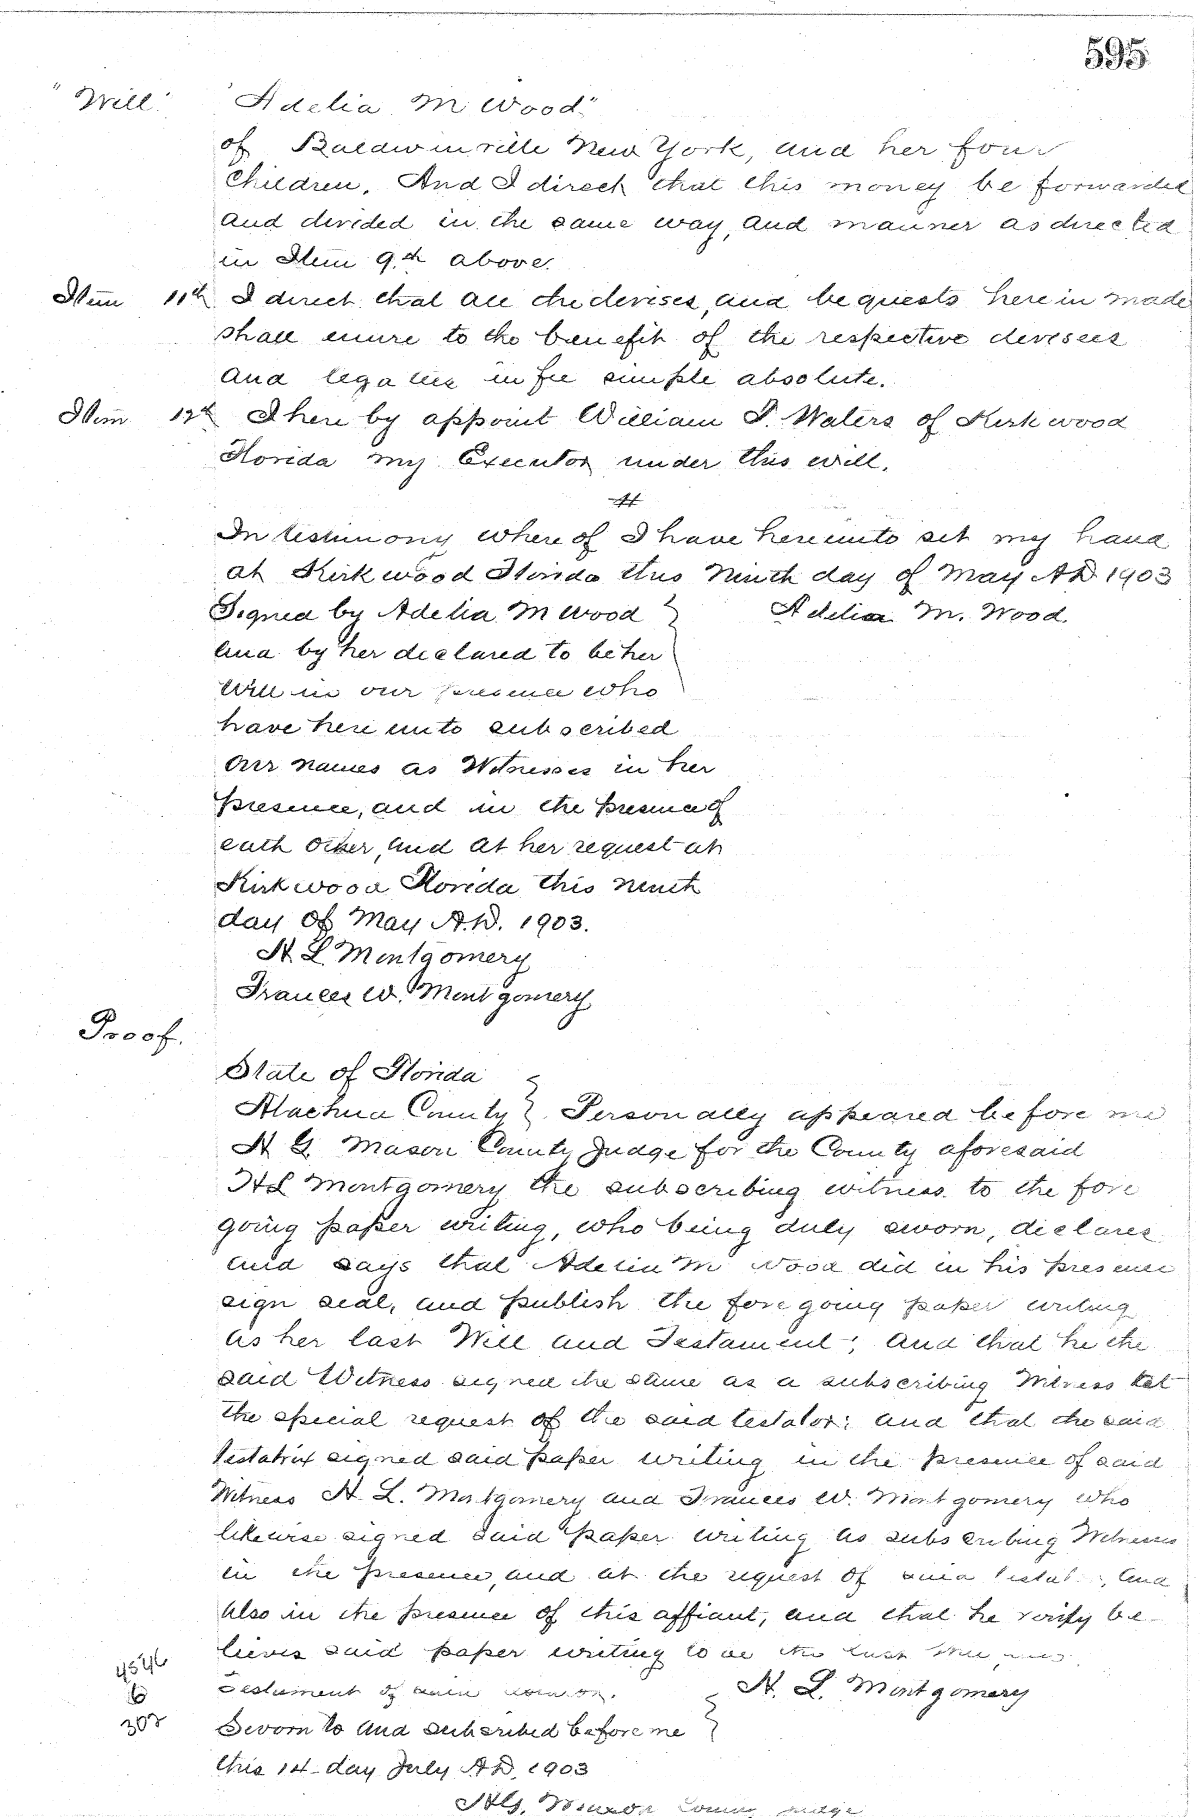 595
"Will" "Adelia M Wood"
of Baldwinville New York, and her four
Children. And I direct that this money be forwarded
and divided in the same way, and manner as directed
in Item 9th above.
Item 11th I direct that all the devises, and bequests herein made
shall enure to the benefit of the respective devisees
and legatees in fee simple absolute.
Item 12th I here by appoint William P. Waters of Kirkwood
Florida my Executor under this will.
In testimony where of I have hereunto set my hand
at Kirkwood Florida this Ninth day of May A.D. 1903
Signed by Adelia M Wood } Adelia M. Wood.
and by her declared to be her
Will in our presence who
have here unto subscribed
our names as Witnesses in her
presence, and in the presence of
each other, and at her request at
Kirkwood Florida this ninth
day of May A.D. 1903.
H. L. Montgomery
Frances W. Montgomery
Proof.
State of Florida }
Alachua County } Personally appeared before me
H. G. Mason County Judge for the County aforesaid
H L Montgomery the subscribing witness to the fore
going paper writing, who being duly sworn, declares
and says that Adelia M Wood did in his presence
sign seal, and publish the fore going paper writing
as her last Will and Testament; and that he the
said Witness signed the same as a subscribing Witness at
the special request of the said testator; and that the said
testatrix signed said paper writing in the presence of said
Witness H. L. Montgomery and Frances W. Montgomery who
likewise signed said paper writing as subscribing Witnesses
in the presence, and at the request of said and
also in the presence of this affiant, and that he verily be-
lieves said paper writing to be the last
4546
Testament of H. L. Montgomery
6
302
Sworn to and subscribed before me }
this 14 day July A.D. 1903
H.G. Mason County Judge